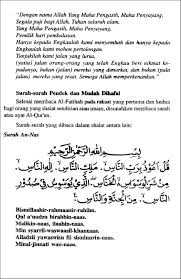 "Dengan nama Allah Yang Maha Pengasih, Maha Penyayang.
Segala puji bagi Allah, Tuhan seluruh alam.
Yang Maha Pengasih, Maha Penyayang.
Pemilik hari pembalasan.
Hanya kepada Engkaulah kami menyembah dan hanya kepada
Engkaulah kami mohon pertolongan.
Tunjukilah kami jalan yang lurus,
(yaitu) jalan orang-orang yang telah Engkau beri nikmat ke-
padanya; bukan (jalan) mereka yang dimurkai, dan bukan (pula
jalan) mereka yang sesat. Semoga Allah memperkenankan."
Surah-surah Pendek dan Mudah Dihafal
Selesai membaca Al-Fatihah pada rakaat yang pertama dan kedua
bagi orang yang shalat sendirian atau imam, disunahkan membaca surah atau
ayat Al-Qur'an.
Surah-surah yang dibaca dalam shalat antara lain:
Surah An-Nas
بِسْمِ اللهِ الرَّحْمٰنِ الرَّحِيْمِ
قُلْ اَعُوْذُ بِرَبِّ النَّاسِۙ. مَلِكِ النَّاسِۙ. اِلٰهِ النَّاسِۙ.
مِنْ شَرِّ الْوَسْوَاسِ الْخَنَّاسِۙ. الَّذِيْ يُوَسْوِسُ فِيْ صُدُوْرِ
النَّاسِۙ. مِنَ الْجِنَّةِ وَالنَّاسِ.
Bismillaahir-rahmaanir-rahiim.
Qul a'uudzu birabbin-naas.
Malikin-naas.
Ilaahin-naas.
Min syarril-waswaasil-khannaas.
Alladzii yuwaswisu fii shuduurin-naas.
Minal-jinnati wan-naas.